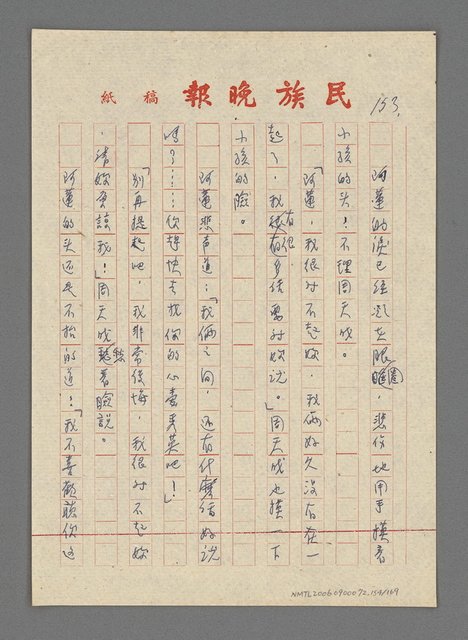 民族晚報 稿紙
153.
阿蓮的淚已經流在眼眶(圈),悲傷地用手摸着
小孩的头!不理周天成。
「阿蓮,我很对不起妳,我俩好久没有在一
起了,我有很多話要对妳说。」周天成也摸一下
小孩的臉。
阿蓮悲声道:「我俩之间,还有什麼話好说
嗎?……你趕快去找你的心[]秀英吧!」
「别再提起吧,我非常後悔,我很对不起妳
,请妳原諒我!」周天成愁着臉說。
阿蓮的头还是不抬的道:「我不喜歡聽你这
NMTL20060900072_154/169